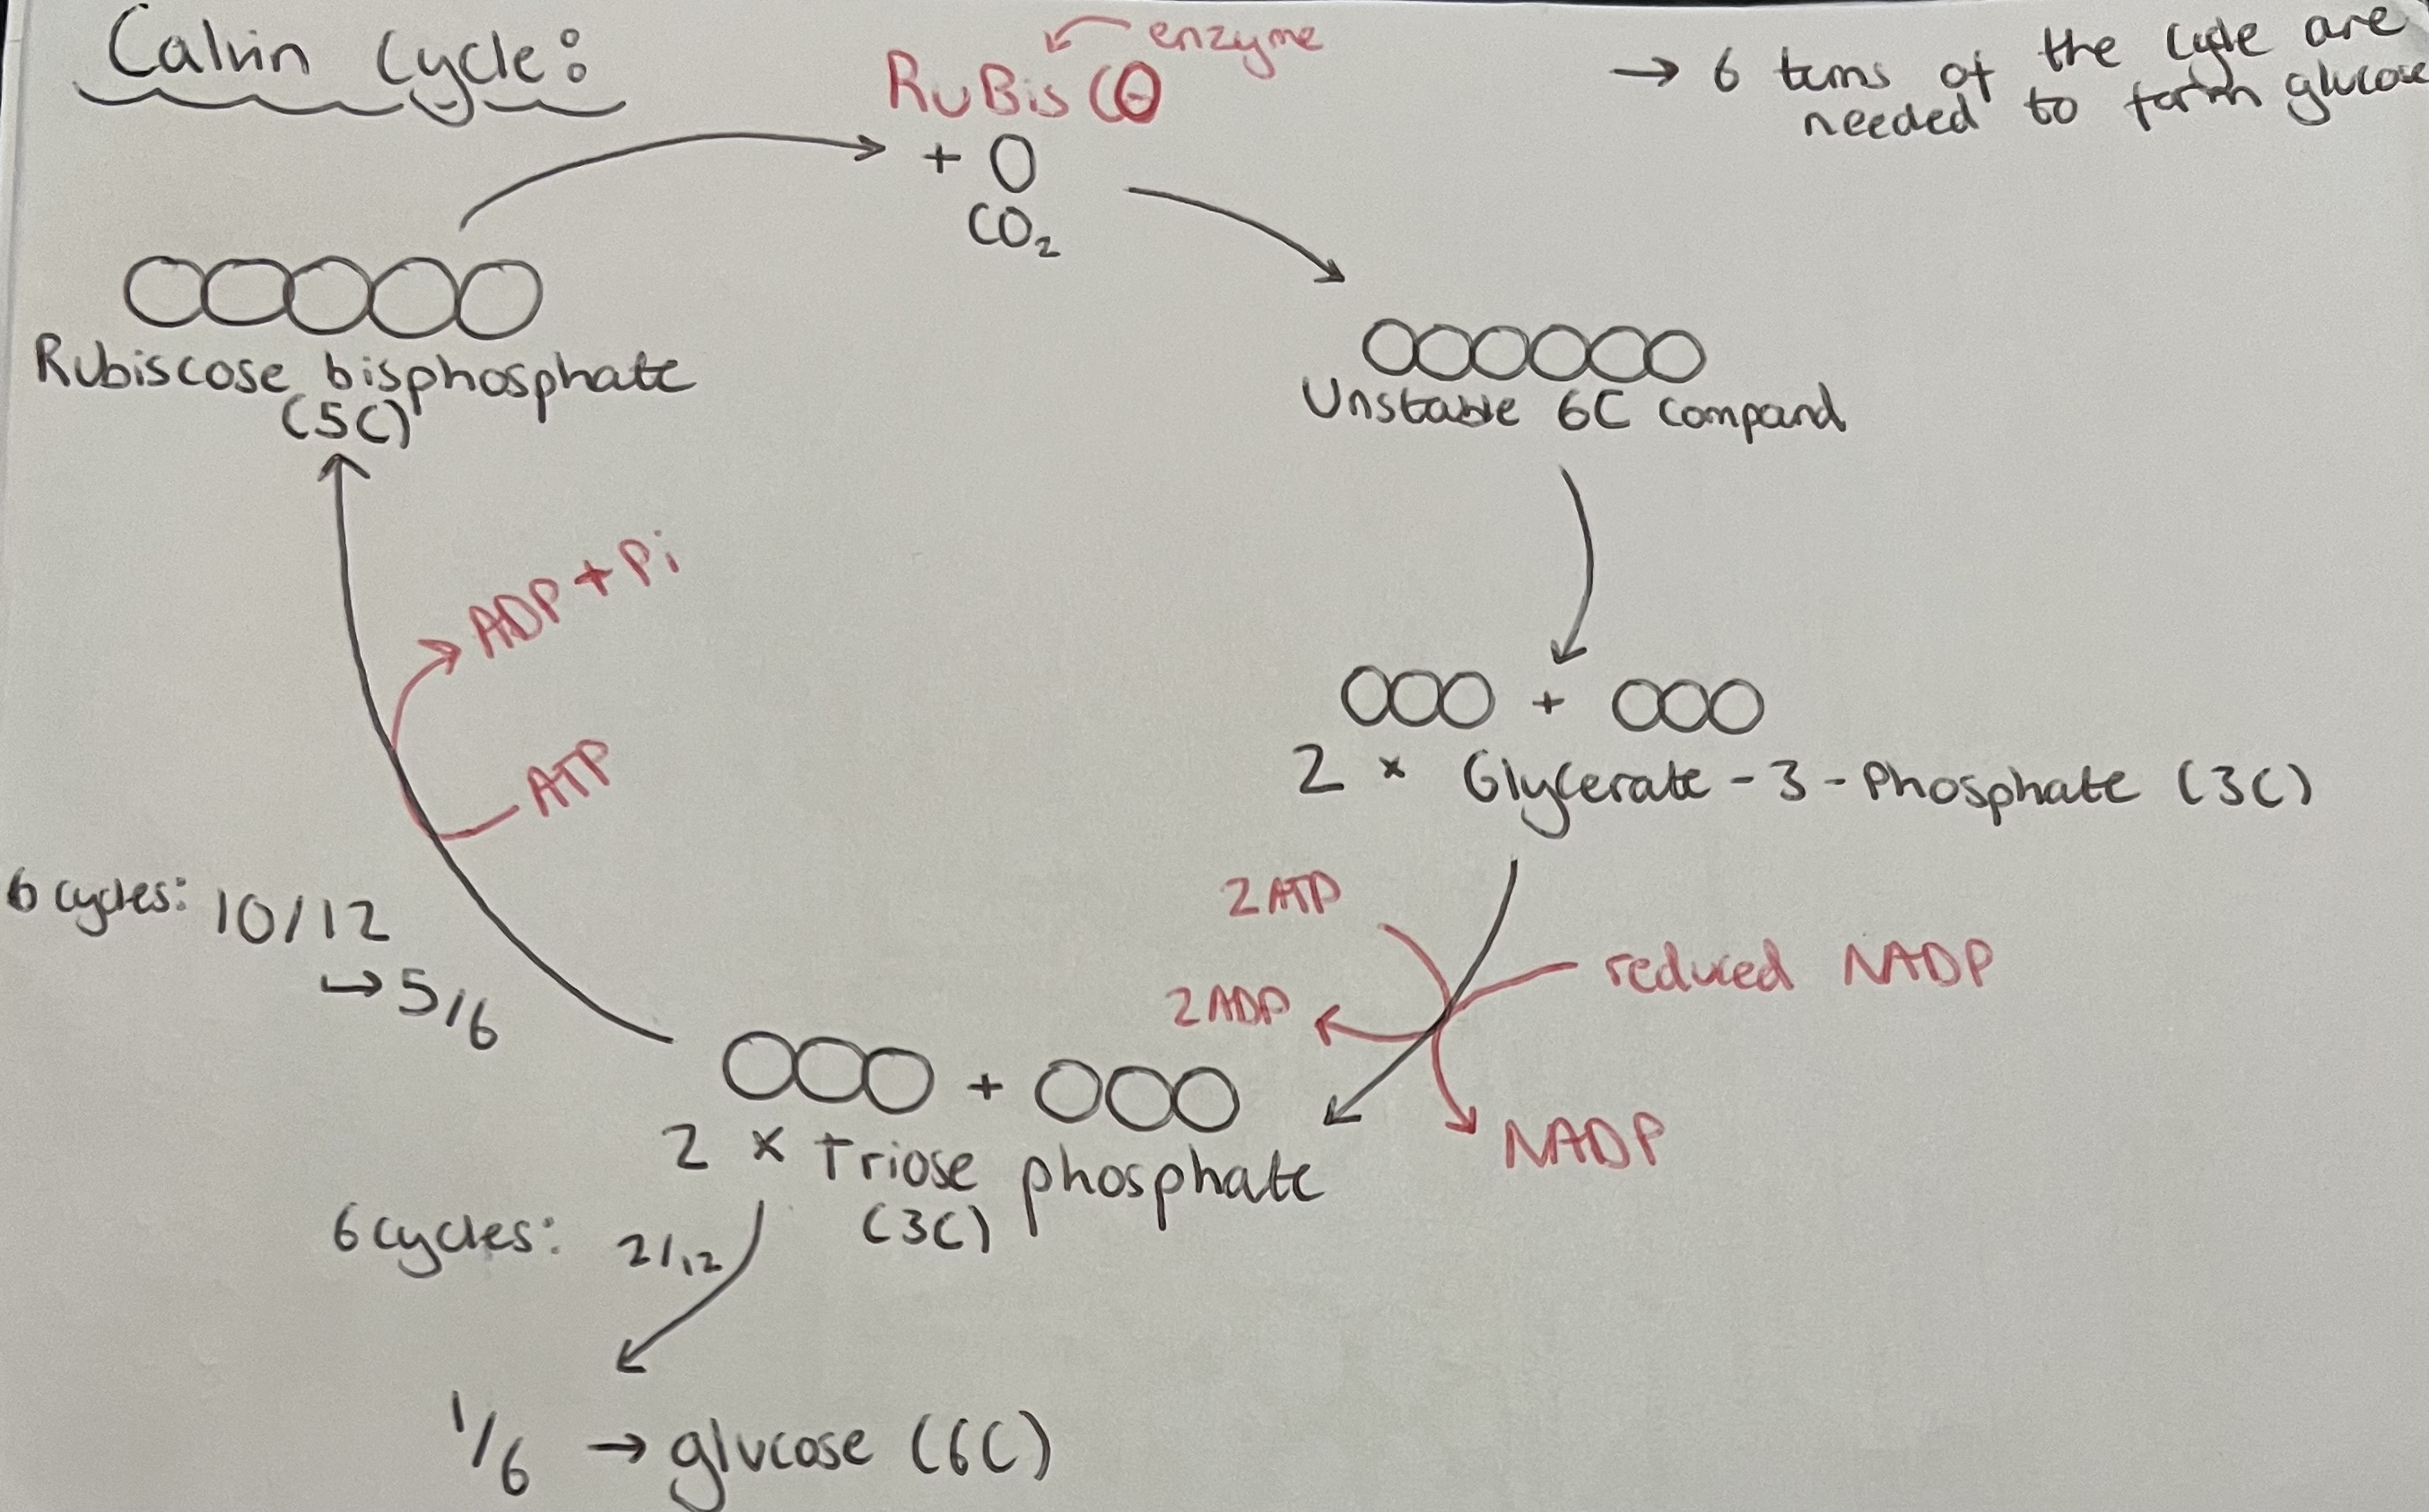 Calvin Cycle:
enzyme
RuBisCO
+
CO₂
→ 6 turns of the cycle are
needed to form glucose
Rubiscose bisphosphate
(5C)
Unstable 6C compound
ADP + Pi
ATP
+
2 × Glycerate-3-Phosphate (3C)
6 cycles: 10/12
→ 5/6
2 ATP
reduced NADP
2 ADP
NADP
+
2 × Triose phosphate
(3C)
6 cycles: 2/12
1/6 → glucose (6C)